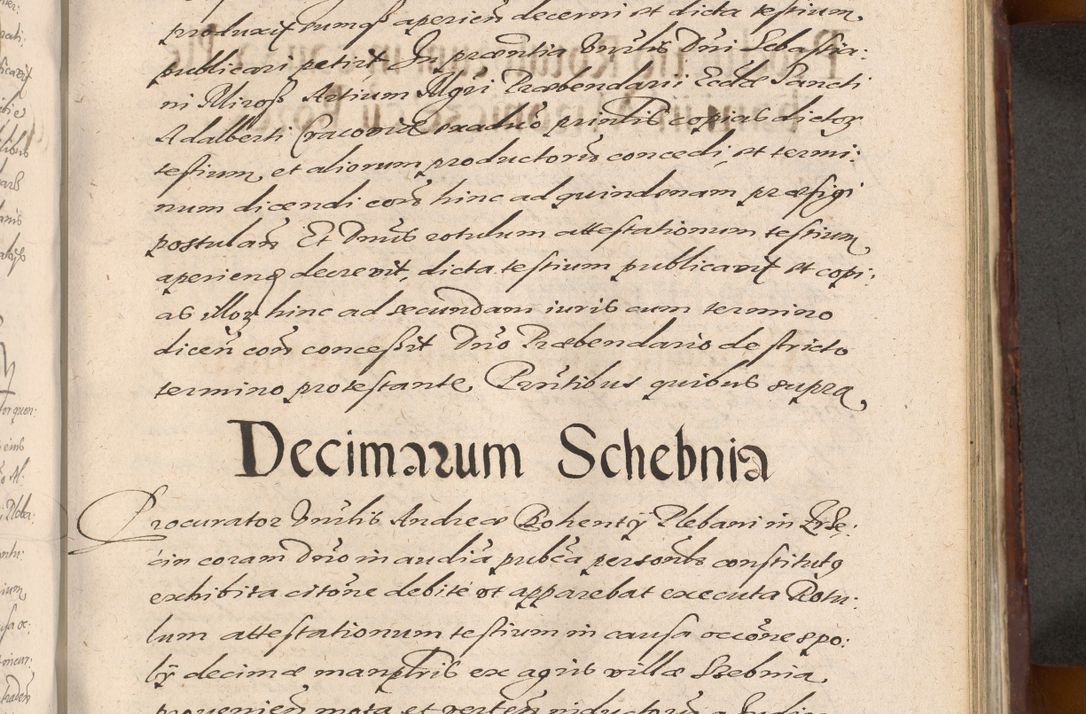 produxit rumqȝ aperien decerni et dicta testium
publicari petivit In pręntia Vnrlis Dni Sebastia:
ni Mirosz Artium Mgri Præbendarii Eccłæ Sancti
Adalberti Cracoviæ ex adv̄o printis copias dictoꝝ
testium, et aliorum productorū concedi, et termi:
num dicendi con̄ hinc ad quindenam præfigi
postulan̄ Et Dnus rotulum attestationum testium
aperienđ decrevit, dicta testium publicavit et copi:
as illoꝝ hinc ad secundam iuris cum termino
dicen̄ con̄ concessit Dno Præbendario de stricto
termino protestante, Prntibus quibus supra
Decimarum Schebnia
Procurator Vnrlis Andreæ Plebani in
cin coram Dno in audiā publcā personlr constitutg
exhibita citōne debite ut apparebat executa Rotu:
lum attestationum testium in causa occōne spo:
lÿ decimæ manplris ex agris villæ Szebnia
provenien̄ mota et verten̄ inductorū a Iudice